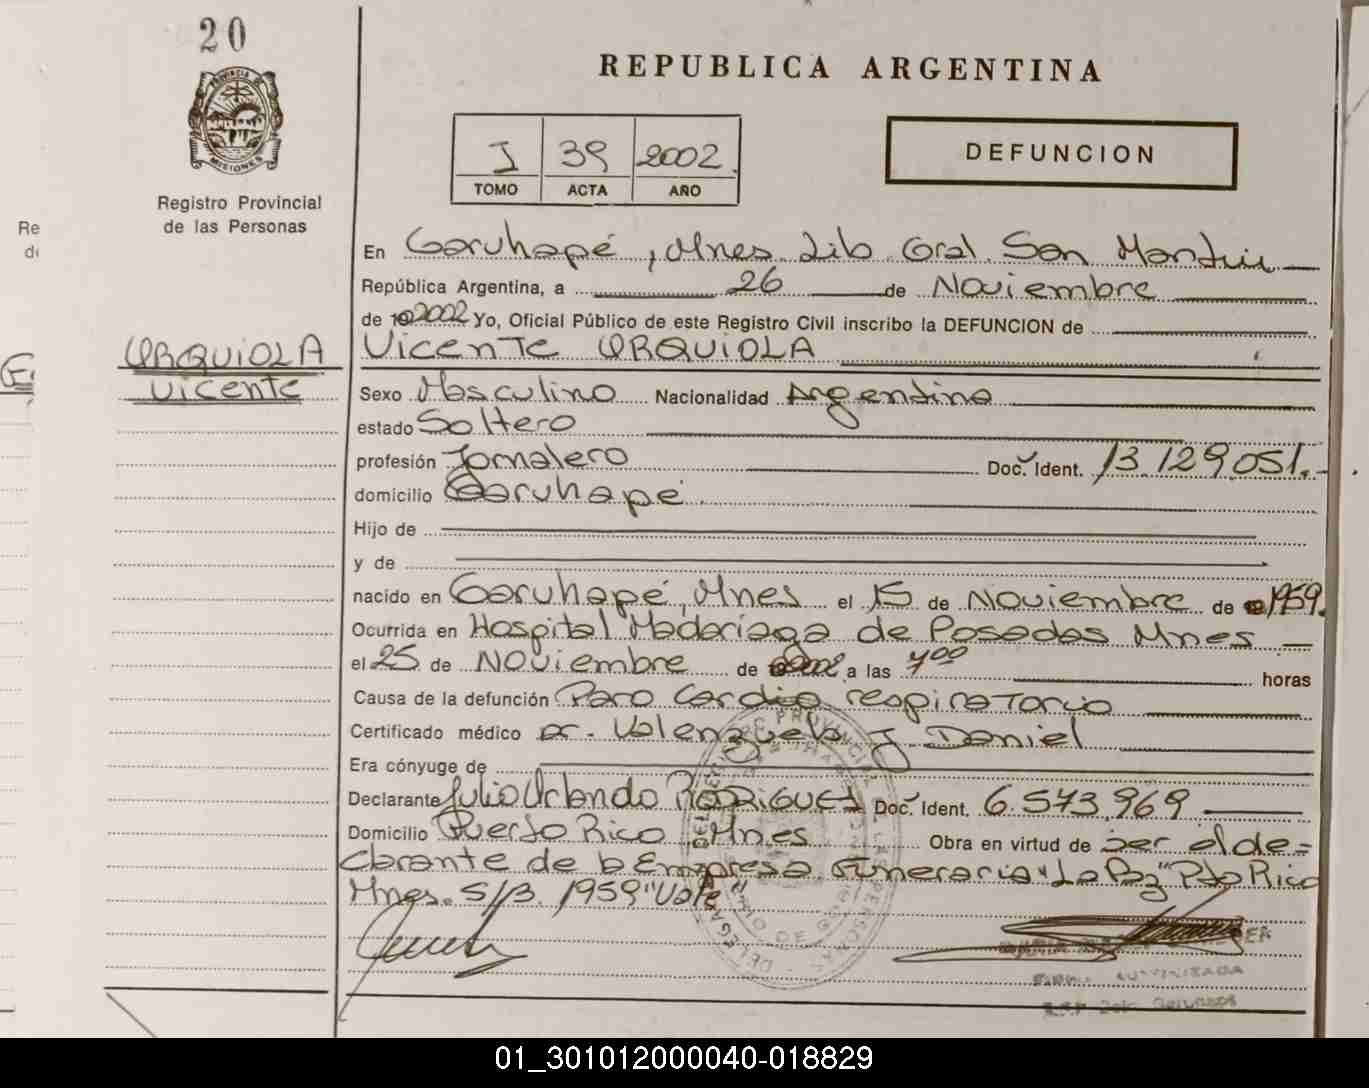 20
PROVINCIA DE
MISIONES
Registro Provincial
de las Personas
URQUIOLA
Vicente
REPUBLICA ARGENTINA
I 39 2002
TOMO ACTA AÑO
DEFUNCION
En Garuhapé, Mnes. Lib. Gral. San Martin
República Argentina, a 26 de Noviembre
de 2002 Yo, Oficial Público de este Registro Civil inscribo la DEFUNCION de
Vicente URQUIOLA
Sexo Masculino Nacionalidad Argentina
estado Soltero
profesión Jornalero Doc. Ident. 13.129.051.-
domicilio Garuhapé
Hijo de
y de
nacido en Garuhapé, Mnes el 15 de Noviembre de 1959.
Ocurrida en Hospital Madariaga de Posadas Mnes
el 25 de Noviembre de 2002 a las 7⁰⁰ horas
Causa de la defunción Paro Cardio respiratorio
Certificado médico Dr. Valenzuela J. Daniel
Era cónyuge de
Declarante Julio Orlando RODRIGUEZ Doc. Ident. 6.573.969
Domicilio Puerto Rico Mnes Obra en virtud de ser el de=
clarante de la Empresa Funeraria "La Paz" Pto Rico
Mnes. S/B. 1959 "Vale"
01_301012000040-018829